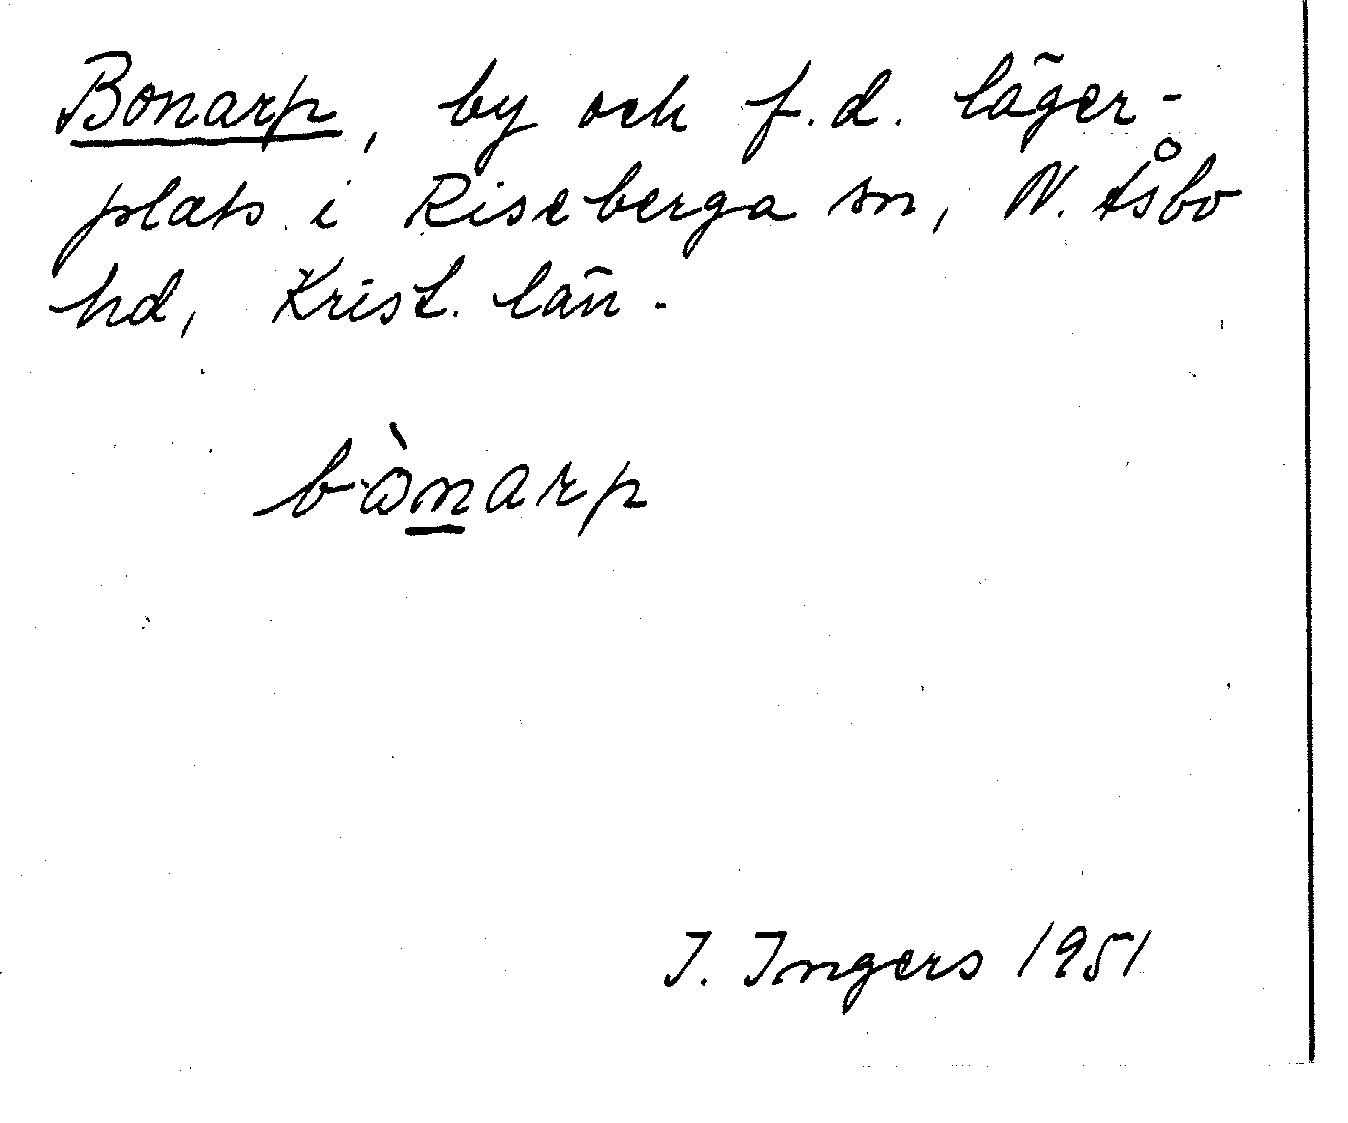 Bonarp, by och f.d. läger-
plats i Riseberga sn, N. Åsbo
hd, Krist. län.
bònarp
I. Ingers 1951